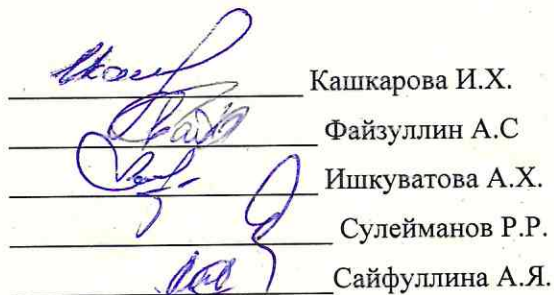 Кашкарова И.Х.
Файзуллин А.С
Ишкуватова А.Х.
Сулейманов Р.Р.
Сайфуллина А.Я.